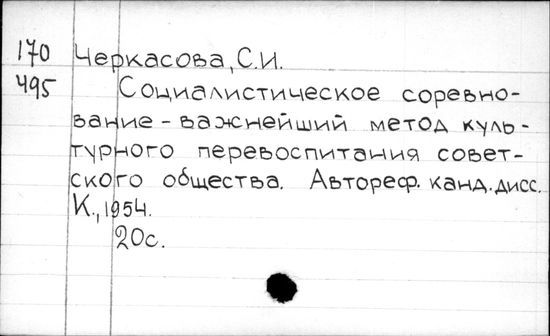 170 Черкасова, С.И.
495 Социалистическое соревно-
вание - важнейший метод куль-
турного перевоспитания совет-
ского общества. Автореф. канд. дисс.
К., 1954.
20с.